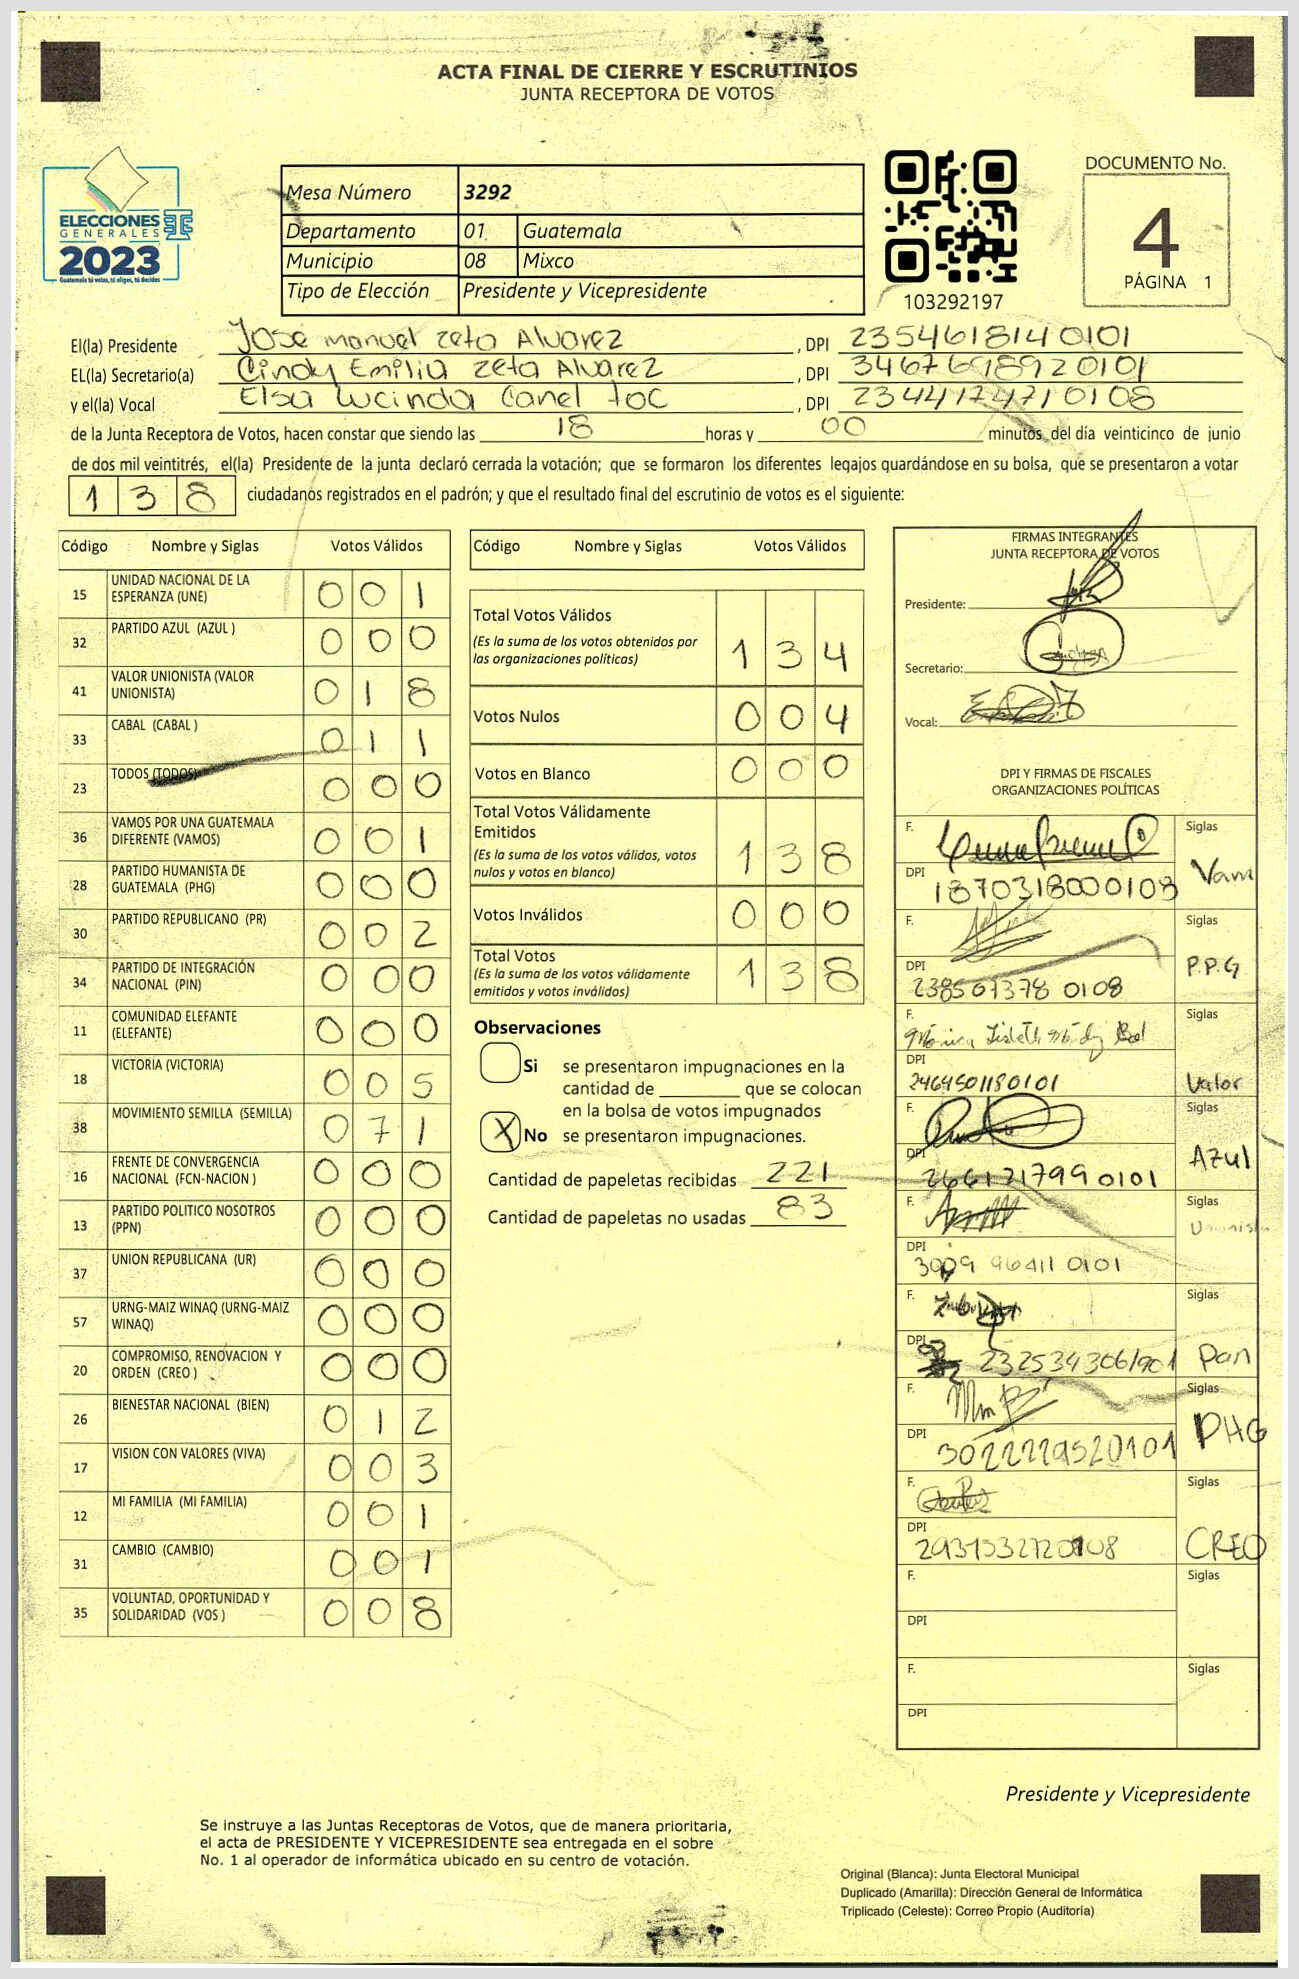 ACTA FINAL DE CIERRE Y ESCRUTINIOS
JUNTA RECEPTORA DE VOTOS
ELECCIONES
GENERALES
2023
Guatemala tú votas, tú eliges, tú decides
Mesa Número 3292
Departamento 01 Guatemala
Municipio 08 Mixco
Tipo de Elección Presidente y Vicepresidente
103292197
DOCUMENTO No.
4
PÁGINA 1
El(la) Presidente Jose manuel zeta Alvarez , DPI 2354618140101
EL(la) Secretario(a) Cindy Emilia zeta Alvarez , DPI 3467698920101
y el(la) Vocal Elsa Lucinda Canel toc , DPI 2344174710108
de la Junta Receptora de Votos, hacen constar que siendo las 18 horas y 00 minutos del día veinticinco de junio
de dos mil veintitrés, el(la) Presidente de la junta declaró cerrada la votación; que se formaron los diferentes legajos guardándose en su bolsa, que se presentaron a votar
138 ciudadanos registrados en el padrón; y que el resultado final del escrutinio de votos es el siguiente:
Código Nombre y Siglas Votos Válidos
15 UNIDAD NACIONAL DE LA ESPERANZA (UNE) 0 0 1
32 PARTIDO AZUL (AZUL ) 0 0 0
41 VALOR UNIONISTA (VALOR UNIONISTA) 0 1 8
33 CABAL (CABAL ) 0 1 1
23 TODOS (TODOS) 0 0 0
36 VAMOS POR UNA GUATEMALA DIFERENTE (VAMOS) 0 0 1
28 PARTIDO HUMANISTA DE GUATEMALA (PHG) 0 0 0
30 PARTIDO REPUBLICANO (PR) 0 0 2
34 PARTIDO DE INTEGRACIÓN NACIONAL (PIN) 0 0 0
11 COMUNIDAD ELEFANTE (ELEFANTE) 0 0 0
18 VICTORIA (VICTORIA) 0 0 5
38 MOVIMIENTO SEMILLA (SEMILLA) 0 7 1
16 FRENTE DE CONVERGENCIA NACIONAL (FCN-NACION ) 0 0 0
13 PARTIDO POLITICO NOSOTROS (PPN) 0 0 0
37 UNION REPUBLICANA (UR) 0 0 0
57 URNG-MAIZ WINAQ (URNG-MAIZ WINAQ) 0 0 0
20 COMPROMISO, RENOVACION Y ORDEN (CREO ) 0 0 0
26 BIENESTAR NACIONAL (BIEN) 0 1 2
17 VISION CON VALORES (VIVA) 0 0 3
12 MI FAMILIA (MI FAMILIA) 0 0 1
31 CAMBIO (CAMBIO) 0 0 1
35 VOLUNTAD, OPORTUNIDAD Y SOLIDARIDAD (VOS ) 0 0 8
Código Nombre y Siglas Votos Válidos
Total Votos Válidos 1 3 4
(Es la suma de los votos obtenidos por
las organizaciones políticas)
Votos Nulos 0 0 4
Votos en Blanco 0 0 0
Total Votos Válidamente
Emitidos 1 3 8
(Es la suma de los votos válidos, votos
nulos y votos en blanco)
Votos Inválidos 0 0 0
Total Votos 1 3 8
(Es la suma de los votos válidamente
emitidos y votos inválidos)
Observaciones
Si se presentaron impugnaciones en la
cantidad de ________ que se colocan
en la bolsa de votos impugnados
X No se presentaron impugnaciones.
Cantidad de papeletas recibidas 221
Cantidad de papeletas no usadas 83
FIRMAS INTEGRANTES
JUNTA RECEPTORA DE VOTOS
Presidente:
Secretario:
Vocal:
DPI Y FIRMAS DE FISCALES
ORGANIZACIONES POLÍTICAS
F. Siglas
DPI 1870318000108 Vam
F. Siglas
DPI 2385673780108 P.P.G
F. Mónica Lisbeth Siglas
DPI 2464501180101 Valor
F. Siglas
DPI 2661717990101 AZUL
F. Siglas
DPI 3009 96411 0101 Unionista
F. Siglas
DPI Pan
F. Siglas
DPI 3022229520101 PHG
F. Siglas
DPI CREO
F. Siglas
DPI
F. Siglas
DPI
Presidente y Vicepresidente
Se instruye a las Juntas Receptoras de Votos, que de manera prioritaria,
el acta de PRESIDENTE Y VICEPRESIDENTE sea entregada en el sobre
No. 1 al operador de informática ubicado en su centro de votación.
Original (Blanca): Junta Electoral Municipal
Duplicado (Amarilla): Dirección General de Informática
Triplicado (Celeste): Correo Propio (Auditoría)